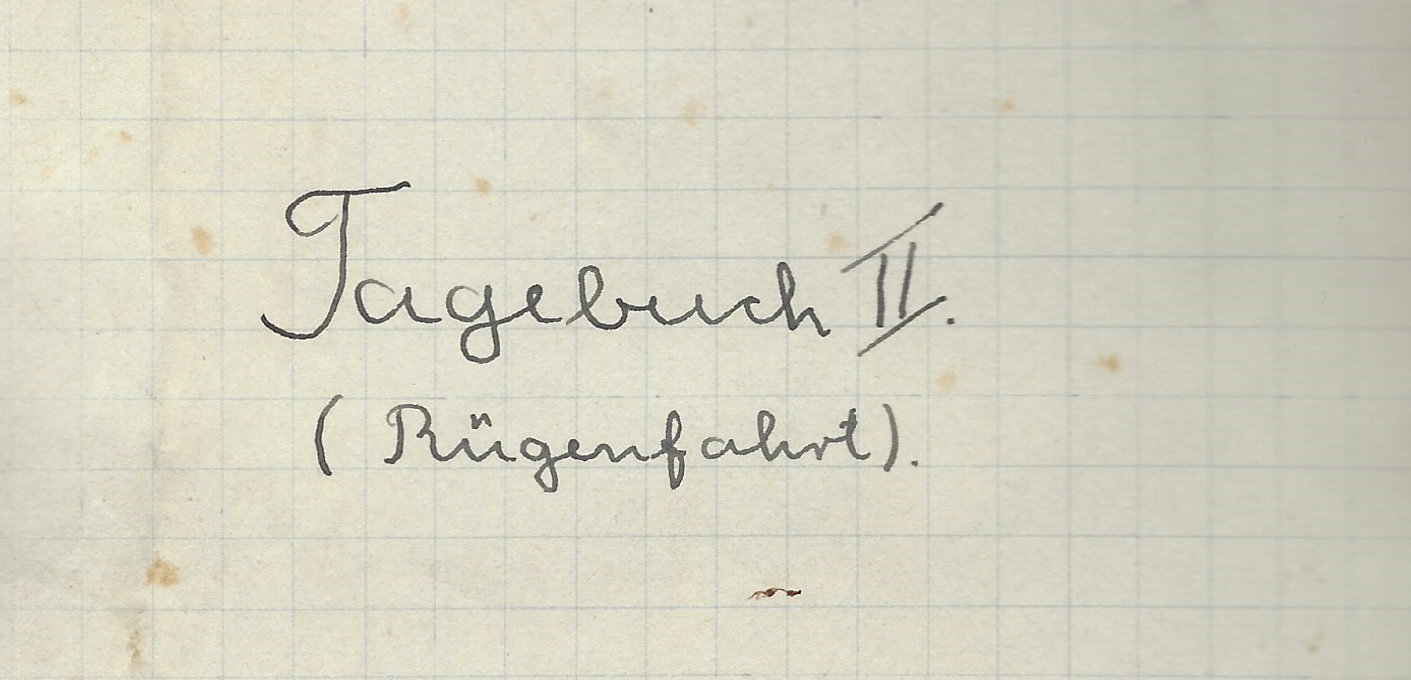 Tagebuch II.
(Rügenfahrt).